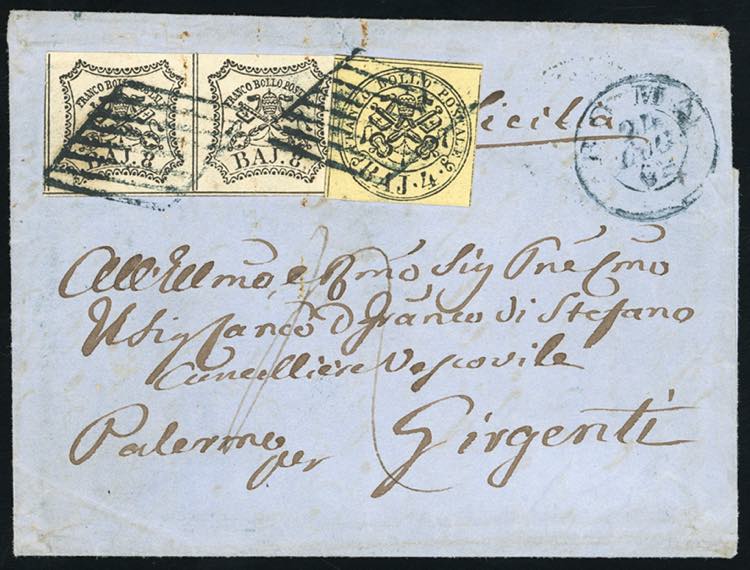 FRANCO BOLLO POSTALE
BAJ. 8
FRANCO BOLLO POSTALE
BAJ. 8
BOLLO POSTALE
BAJ. 4.
Sicilia
ROMA
All'Illmo e Rmo Sig Pne Cmo
di Stefano
Cancelliere Vescovile
Palermo per Girgenti